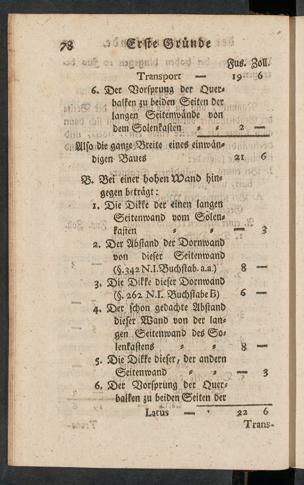 78 Erste Gründe
Fus. Zoll.
Transport — 19 6
6. Der Vorsprung der Quer-
balken zu beiden Seiten der
langen Seitenwände von
dem Solenkasten 〃 〃 2 —
Also die ganze Breite eines einwän-
digen Baues 21 6
B. Bei einer hohen Wand hin-
gegen beträgt:
1. Die Dikke der einen langen
Seitenwand vom Solen-
kasten 〃 〃 — 3
2. Der Abstand der Dornwand
von dieser Seitenwand
(§. 342 N.I. Buchstab. a.a.) 8 —
3. Die Dikke dieser Dornwand
(§. 262 N.I. Buchstabe B) 6 —
4. Der schon gedachte Abstand
dieser Wand von der lan-
gen Seitenwand des So-
lenkastens 〃 〃 8 —
5. Die Dikke dieser, der andern
Seitenwand 〃 〃 — 3
6. Der Vorsprung der Quer-
balken zu beiden Seiten der
Latus — 22 6
Trans-